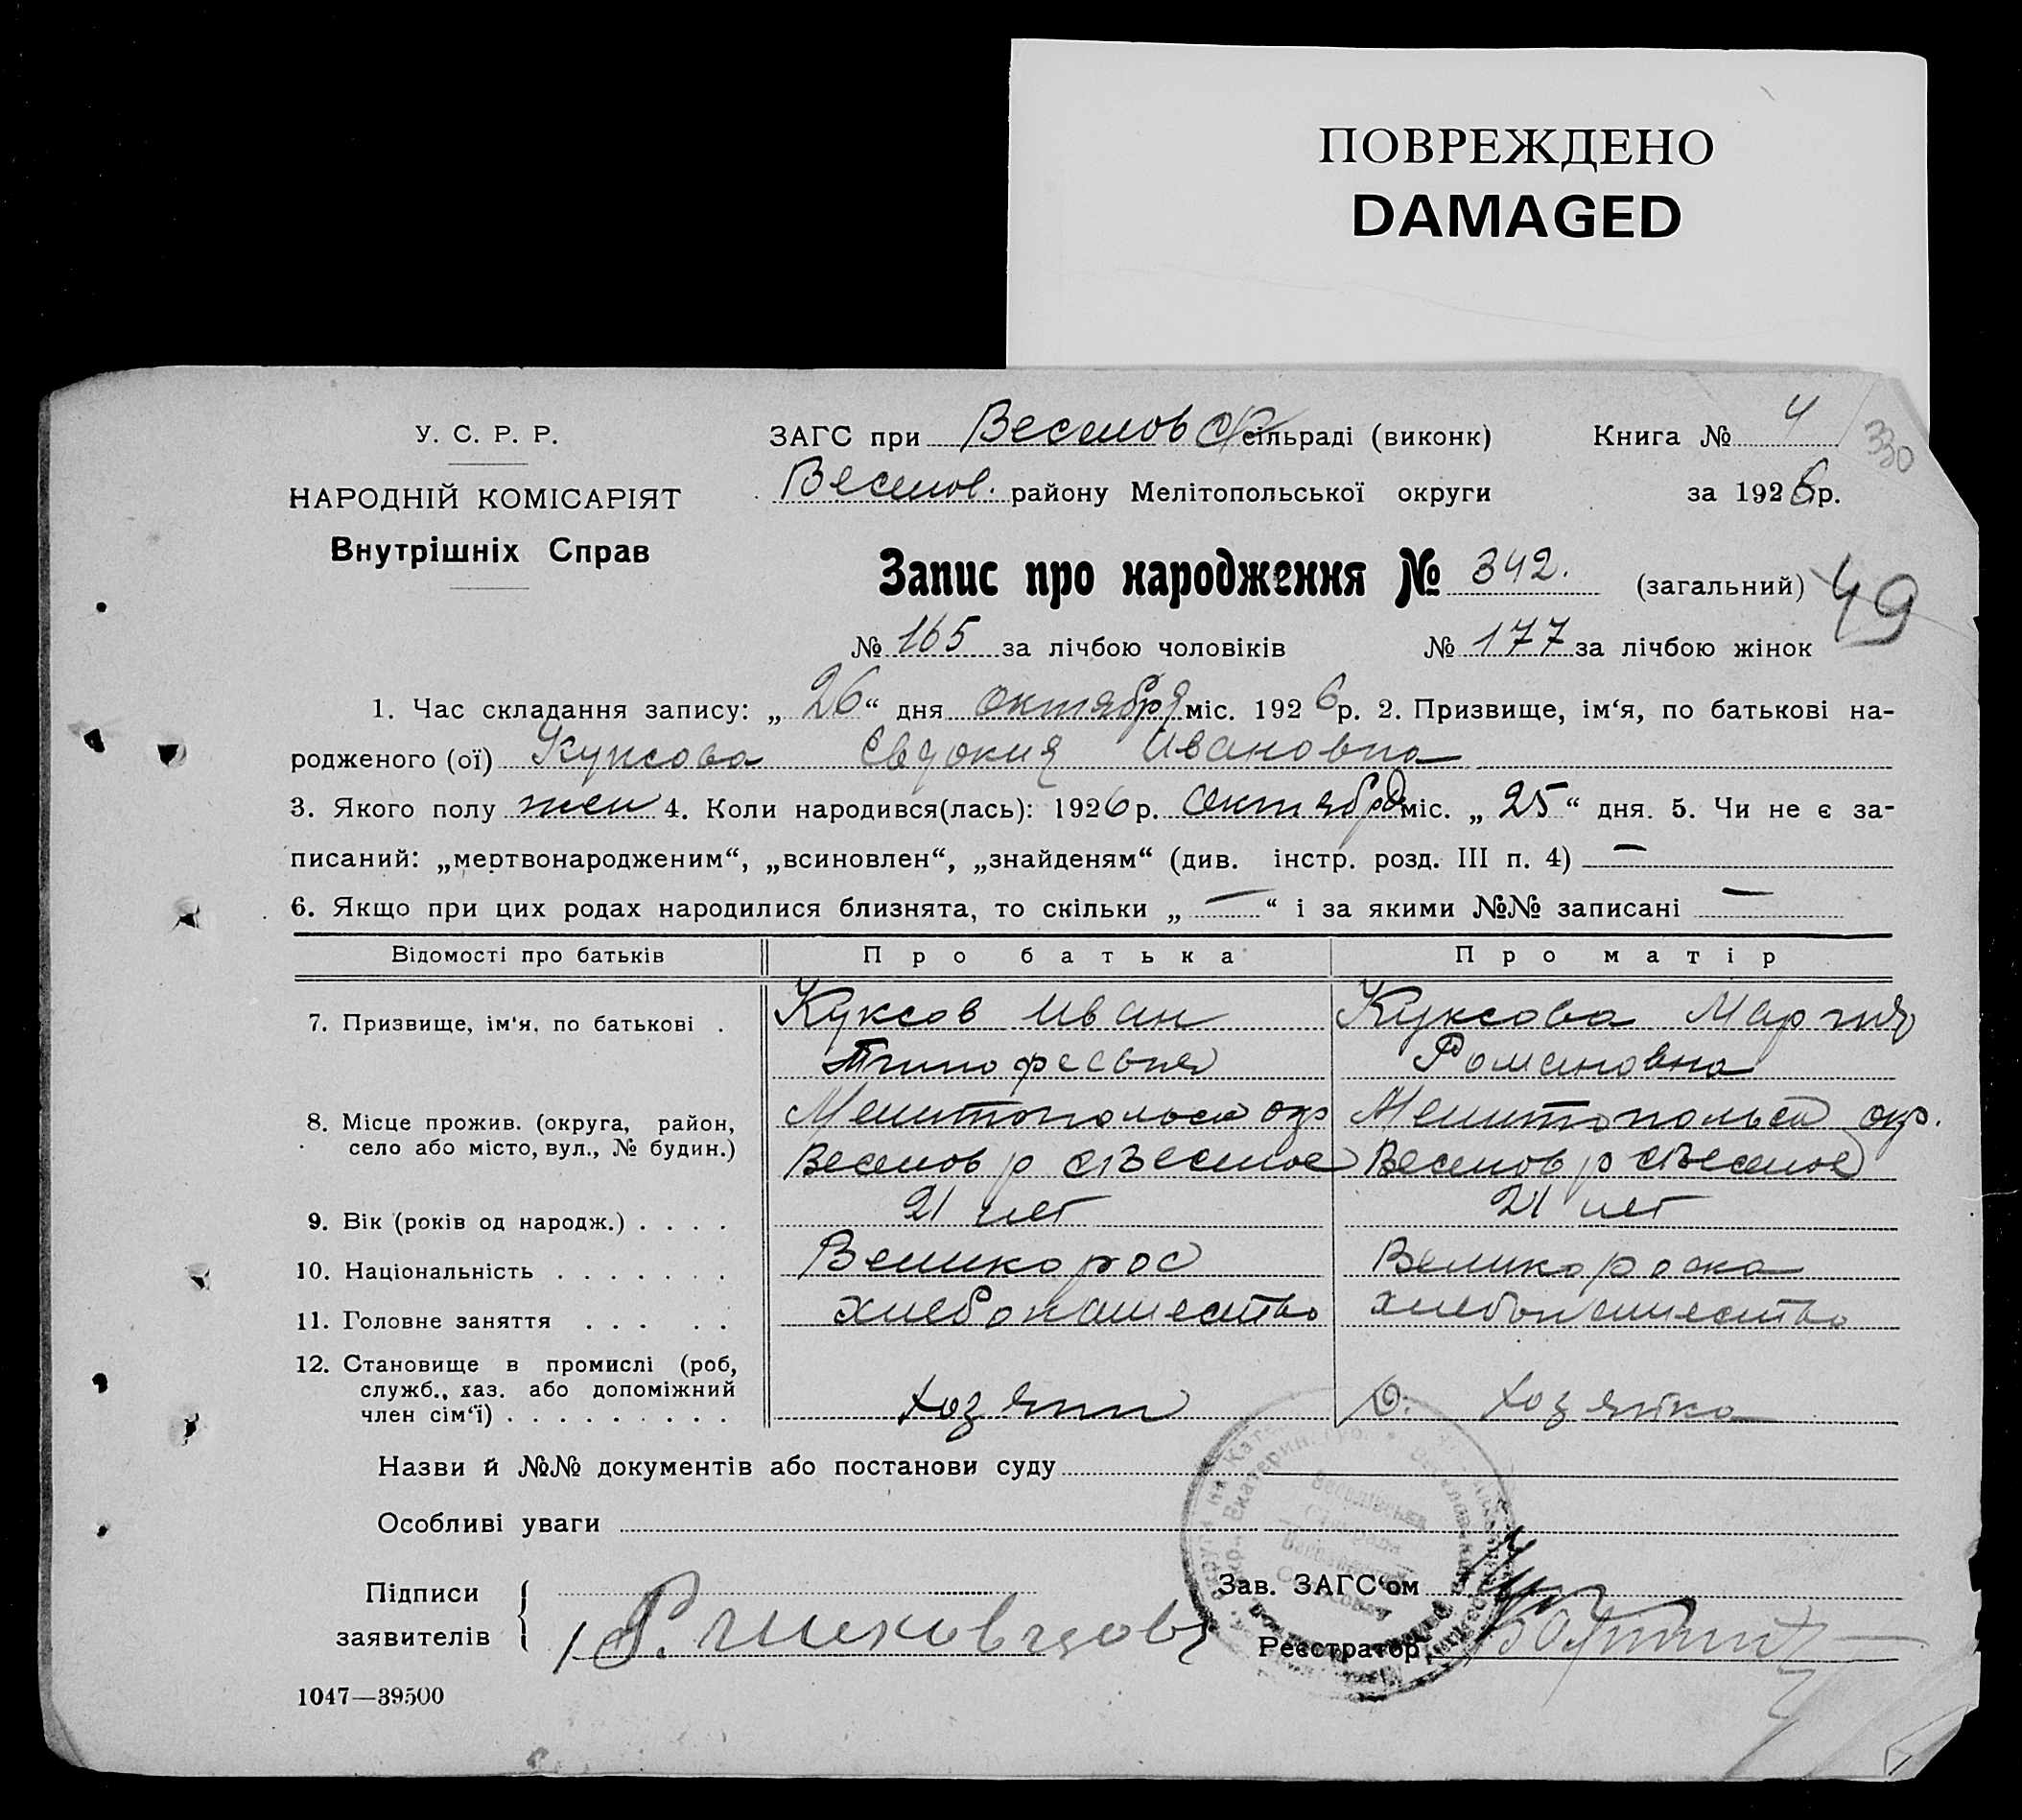 ПОВРЕЖДЕНО
DAMAGED
У. С. Р. Р.
НАРОДНІЙ КОМІСАРІЯТ
Внутрішніх Справ
ЗАГС при Веселов сільраді (виконк) Книга № 4
330
Веселов. району Мелітопольської округи за 1926 р.
Запис про народження № 342. (загальний) 49
№ 165 за лічбою чоловіків № 177 за лічбою жінок
1. Час складання запису: „ 26 “ дня октября міс. 1926 р. 2. Призвище, ім‘я, по батькові на-
родженого (ої) Куксова Евдокия Ивановна
3. Якого полу жен 4. Коли народився(лась): 1926 р. Октября міс. „ 25 “ дня. 5. Чи не є за-
писаний: „мертвонародженим“, „всиновлен“, „знайденям“ (див. інстр. розд. III п. 4) —
6. Якщо при цих родах народилися близнята, то скільки „ — “ і за якими №№ записані —
Відомості про батьків Про батька Про матір
7. Призвище, ім‘я, по батькові . Куксов Иван Куксова Мария
Тимофеевич Романовна
8. Місце прожив. (округа, район, Мелитопольск окр Мелитопольск окр.
село або місто, вул., № будин.) Веселов р с Веселое Веселов р с Веселое
9. Вік (років од народж.) . . . . 21 лет 21 лет
10. Національність . . . . . . . Великорос Великороска
11. Головне заняття . . . . . хлебопашество хлебопашество
12. Становище в промислі (роб,
служб., хаз. або допоміжний
член сім‘ї) . . . . . . . . . хозяин хозяйка
Назви й №№ документів або постанови суду
Особливі уваги
Підписи
заявителів
Зав. ЗАГС‘ом
Реєстратор
1047—39500